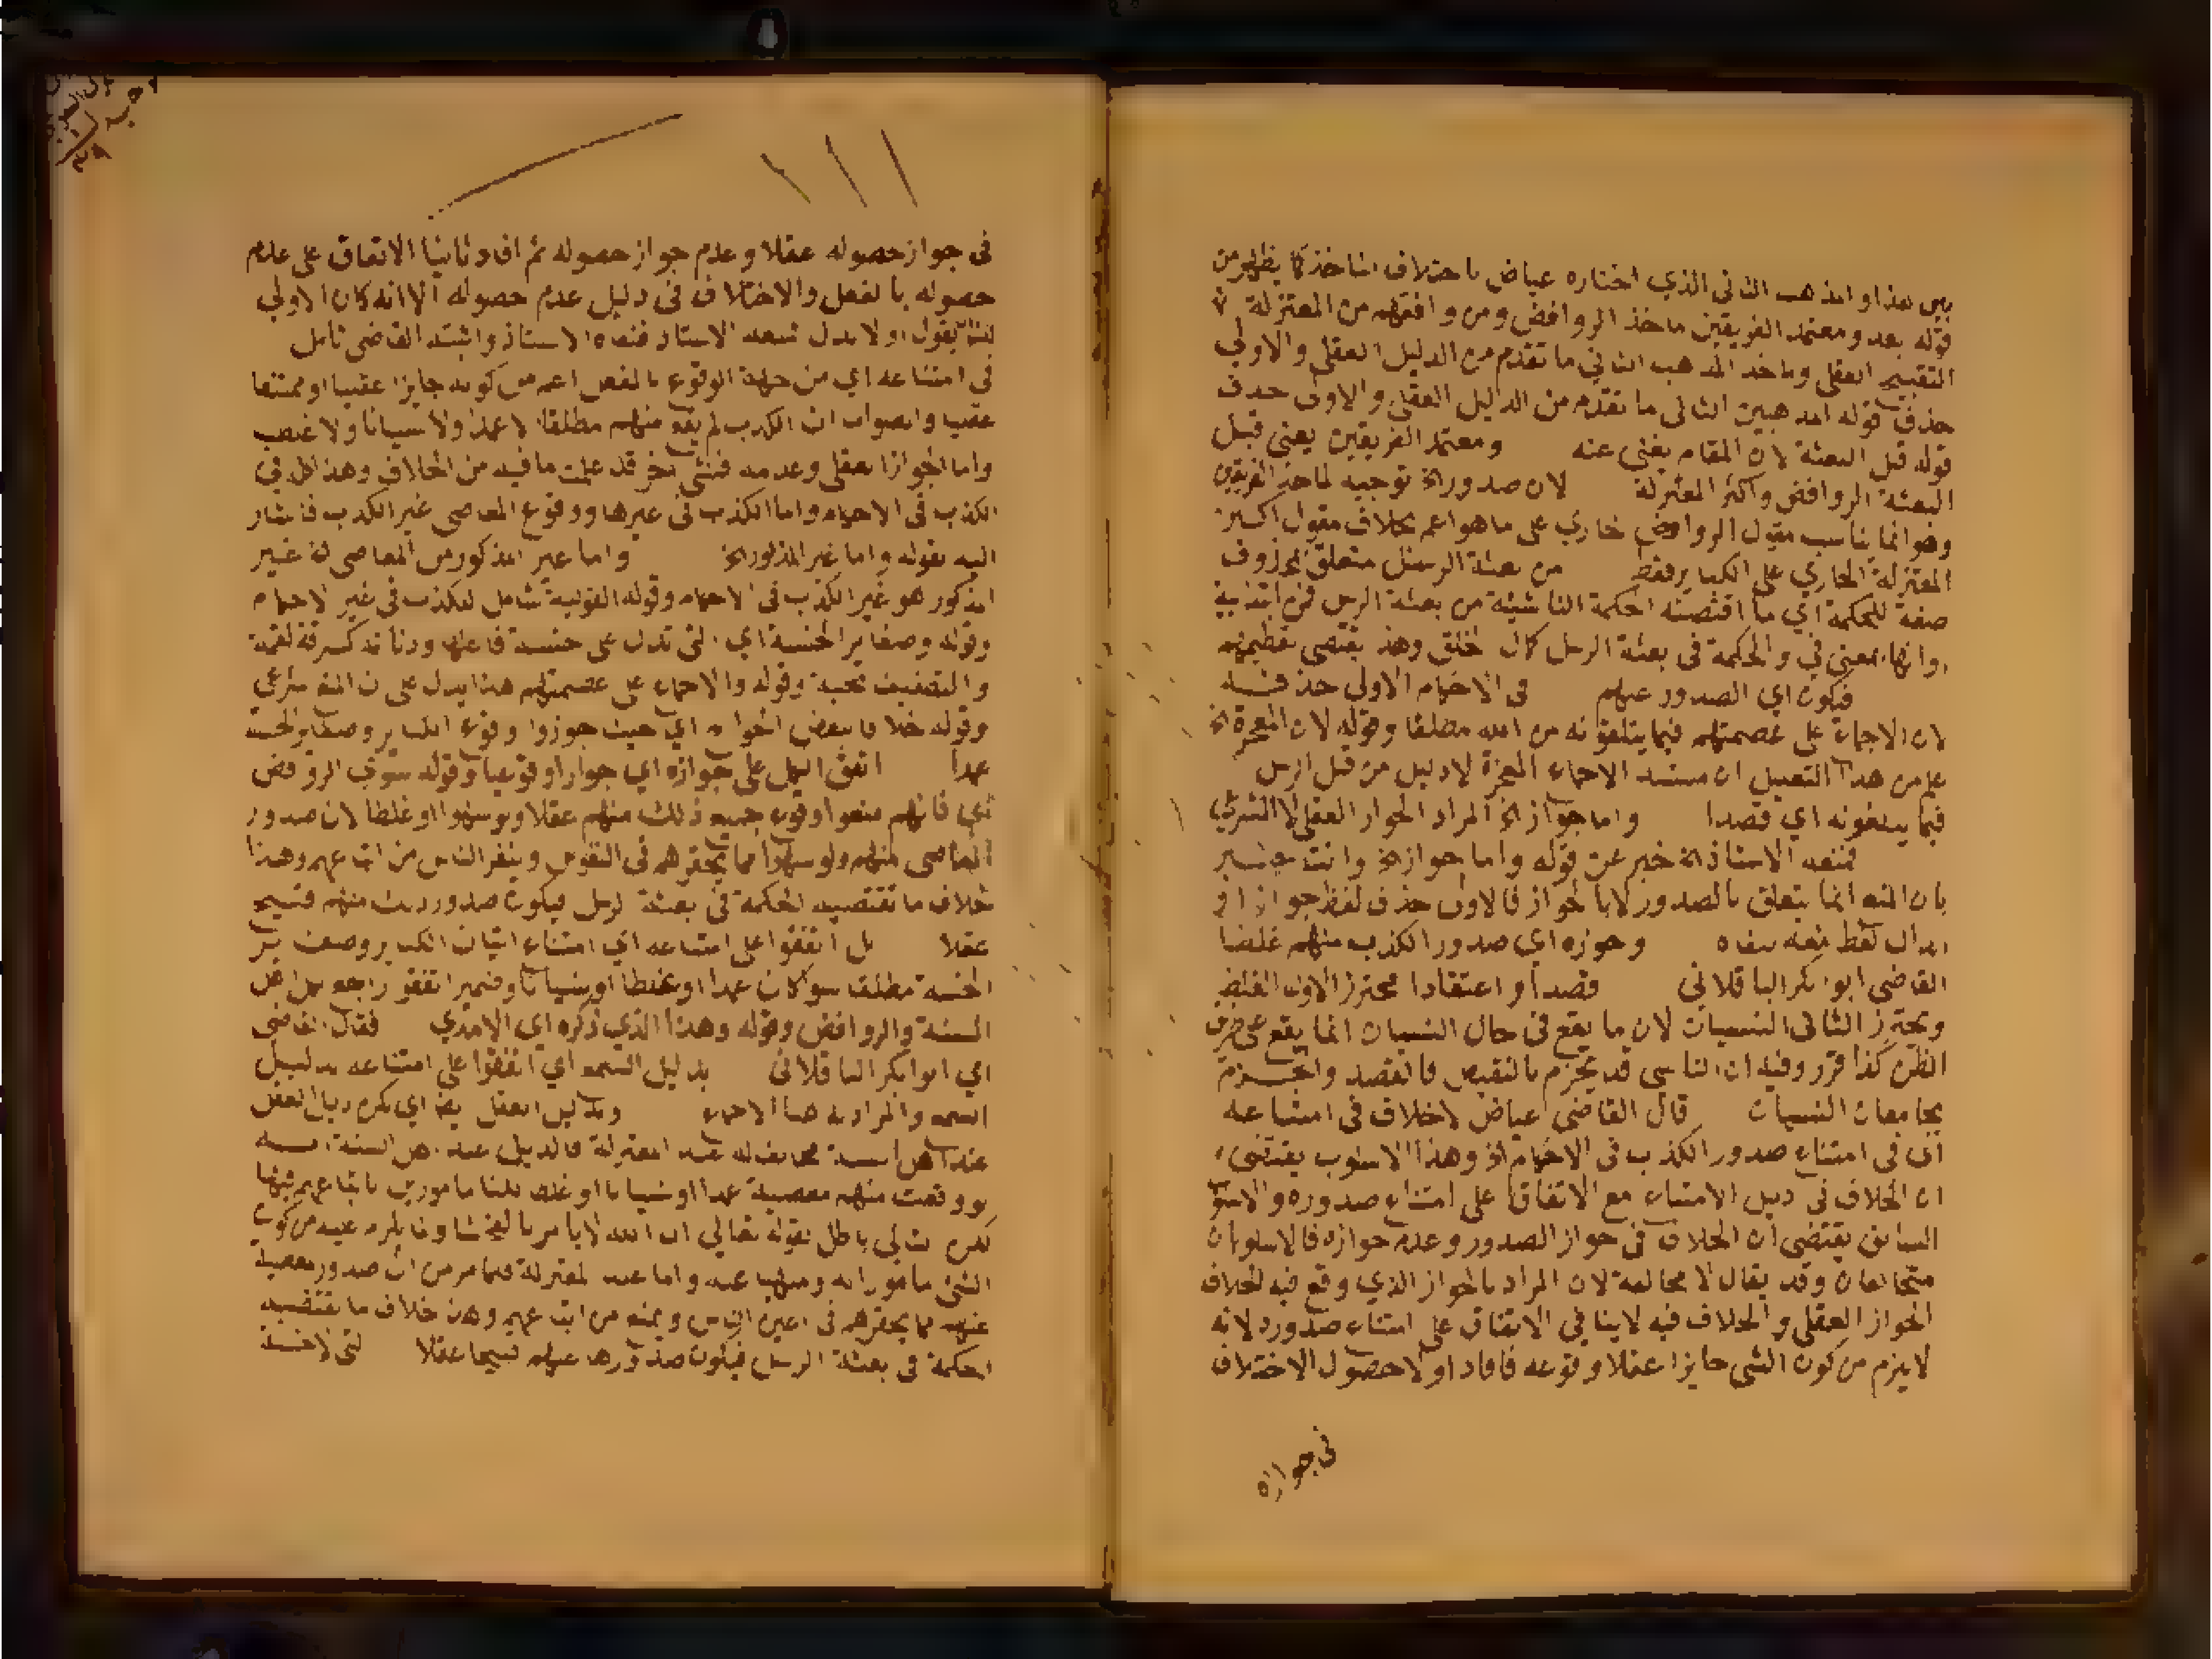 بين هذا والمذهب الثاني الذي اختاره عياض باختلاف المأخذ كما يظهر من
قوله بعد ومعتمد الفريقين مأخذ الروافض ومن وافقهم من المعتزلة
التقبيح العقلي وماخذ المذهب الثاني ما تقدم من الدليل العقلي والاولى
حذف قوله المذهبين الثاني ما تقدم من الدليل العقلي والاولى حذف
قوله قبل البعثة لان المقام يغني عنه ومعتمد الفريقين يعني قبل
البعثة الروافض واكثر المعتزلة لان صدور الخ توجيه لماخذ الفريقين
وهو انما يناسب مقول الروافض الجاري على ما هو اعم بخلاف مقول اكثر
المعتزلة الجاري على الكباير فقط من بعثة الرسل متعلق بمحذوف
صفة للحكمة اي ما اقتضته الحكمة الناشئة من بعثة الرسل فمن ابتدائية
او انها بمعنى في والحكمة في بعثة الرسل كمال الخلق وهذا يقتضي تعظيمهم
فيكون اي الصدور عنهم في الاحكام الاولى حذفه
لان الاجماع على عصمتهم فيما يبلغونه من الله مطلقا وقوله لان المعجزة الخ
علم من هذا التعليل ان مستند الاجماع المعجزة لا دليل من قبل الرسل
فيما يبلغونه اي قصدا واما جواز الخ المراد الجواز العقلي لا الشرعي
فمنعه الاستاذ الخ خبر عن قوله واما جواز الخ وانت خبير
بان المنع انما يتعلق بالصدور لا بالجواز فالاولى حذف لفظ جواز او
ابدال لفظ منعه بنفاه وجوزه اي صدور الكذب منهم غلطا
القاضي ابو بكر الباقلاني قصدا او اعتقادا محترز الاول الغلط
ومحترز الثاني النسيان لان ما يقع في حال النسيان انما يقع على طرف
الظن كذا قرر وفيه ان الناسي قد يجزم بالنقيض فالقصد والجزم
يجامعان النسيان قال القاضي عياض لا خلاف في امتناعه
اي في امتناع صدور الكذب في الاحكام الخ وهذا الاسلوب يقتضي
ان الخلاف في دليل الامتناع مع الاتفاق على امتناع صدوره والاسلوب
السابق يقتضي ان الخلاف في جواز الصدور وعدم جوازه فالاسلوبان
متخالفان وقد يقال لا مخالفة لان المراد بالجواز الذي وقع فيه الخلاف
الجواز العقلي والخلاف فيه لا ينافي الاتفاق على امتناع صدوره لانه
لا يلزم من كون الشي جايزا عقلا وقوعه فافاد اولا حصول الاختلاف
في جوازه
في جواز حصوله عقلا وعدم جواز حصوله ثم افاد ثانيا الاتفاق على عدم
حصوله بالفعل والاختلاف في دليل عدم حصوله الا انه كان الاولى
يقول اولا بدل فمنعه الاستاذ فنفاه الاستاذ واثبته القاضي تامل
في امتناعه اي من جهة الوقوع بالفعل اعم من كونه جايزا عقليا او ممتنعا
عقليا والصواب ان الكذب لم يقع منهم مطلقا لا عمدا ولا نسيانا ولا غلطا
واما الجواز العقلي وعدمه فشي آخر قد علمت ما فيه من الخلاف وهذا كله في
الكذب في الاحكام واما الكذب في غيرها ووقوع المعاصي غير الكذب فاشار
اليه بقوله واما غير المذكور الخ واما غير المذكور من المعاصي
المذكور هو غير الكذب في الاحكام وقوله القولية شامل للكذب في غير الاحكام
وقوله وصغاير الخسة اي التي تدل على خسة فاعلها ودناءته كسرقة لقمة
والتطفيف بحبة وقوله والاجماع على عصمتهم هذا يدل على ان المنع شرعي
وقوله خلافا لبعض الخوارج اي حيث جوزوا وقوع الكباير وصغاير الخسة
عمدا اتفق الكل على جوازه اي جوازا وقوعيا وقوله سوى الروافض
اي فانهم منعوا وقوع جميع ذلك منهم عقلا ولو سهوا او غلطا لان صدور
المعاصي منهم ولو سهوا مما يحقرهم في النفوس وينفر الناس من اتباعهم وهذا
خلاف ما تقتضيه الحكمة في بعثة الرسل فيكون صدور ذلك منهم قبيحا
عقلا بل اتفقوا على امتناعه اي امتناع اتيان الكباير وصغاير
الخسة مطلقا سوا كان عمدا او غلطا او نسيانا وضمير اتفقوا راجع لاهل
السنة والروافض وقوله وهذا الذي ذكره اي الامدي فقال القاضي
اي ابو بكر الباقلاني بدليل السمع اي اتفقوا على امتناعه بدليل
السمع والمراد به هنا الاجماع وبدليل العقل
لو وقعت منهم معصية عمدا او نسيانا او غلطا لكنا مامورين باتباعهم فيها
لكن التالي باطل لقوله تعالى ان الله لا يامر بالفحشا ولما يلزم عليه من كون
الشي مامورا به ومنهيا عنه واما عند المعتزلة فلما مر من ان صدور المعصية
عنهم مما يحقرهم في اعين الناس ويمنع من اتباعهم وهذا خلاف ما تقتضيه
الحكمة في بعثة الرسل فيكون صدورها عنهم قبيحا عقلا التي لا خسة